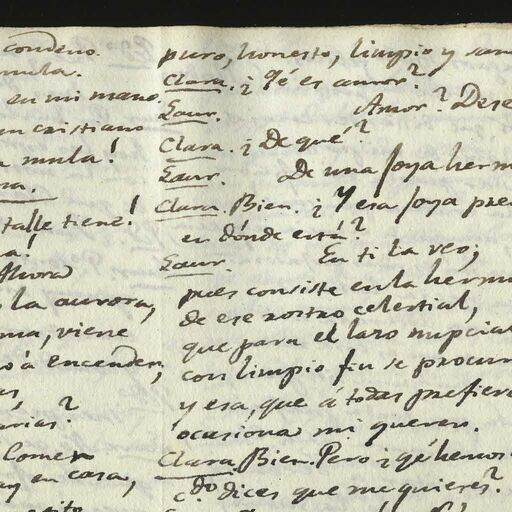 condeno.
mula.
en mi mano.
un cristiano
mula!
talle tiene!
Ahora
la aurora,
viene
ó á encender;
Comer
en casa,
puro, honesto, limpio y san
Clara. ¿Qé es amor?
Laur. Amor? Dese
Clara. ¿De qué?
Laur. De una Joya herm
Clara. Bien. ¿Y esa Joya pre
en dónde está?
Laur. En ti la veo;
pues consiste en la hermo
de ese rostro celestial,
que para el lazo nupcial
con limpio fin se procur
y esa, que á todas prefiero
ocasiona mi querer.
Clara. Bien. Pero ¿qé hemos
c.do dices que me quieres?